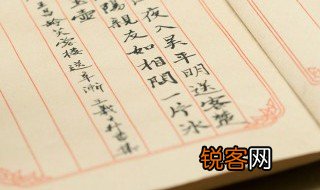 夜入吴平明送客楚
陽親友如相問一片冰
玉壺
昌齡芙蓉樓送辛漸
锐客网